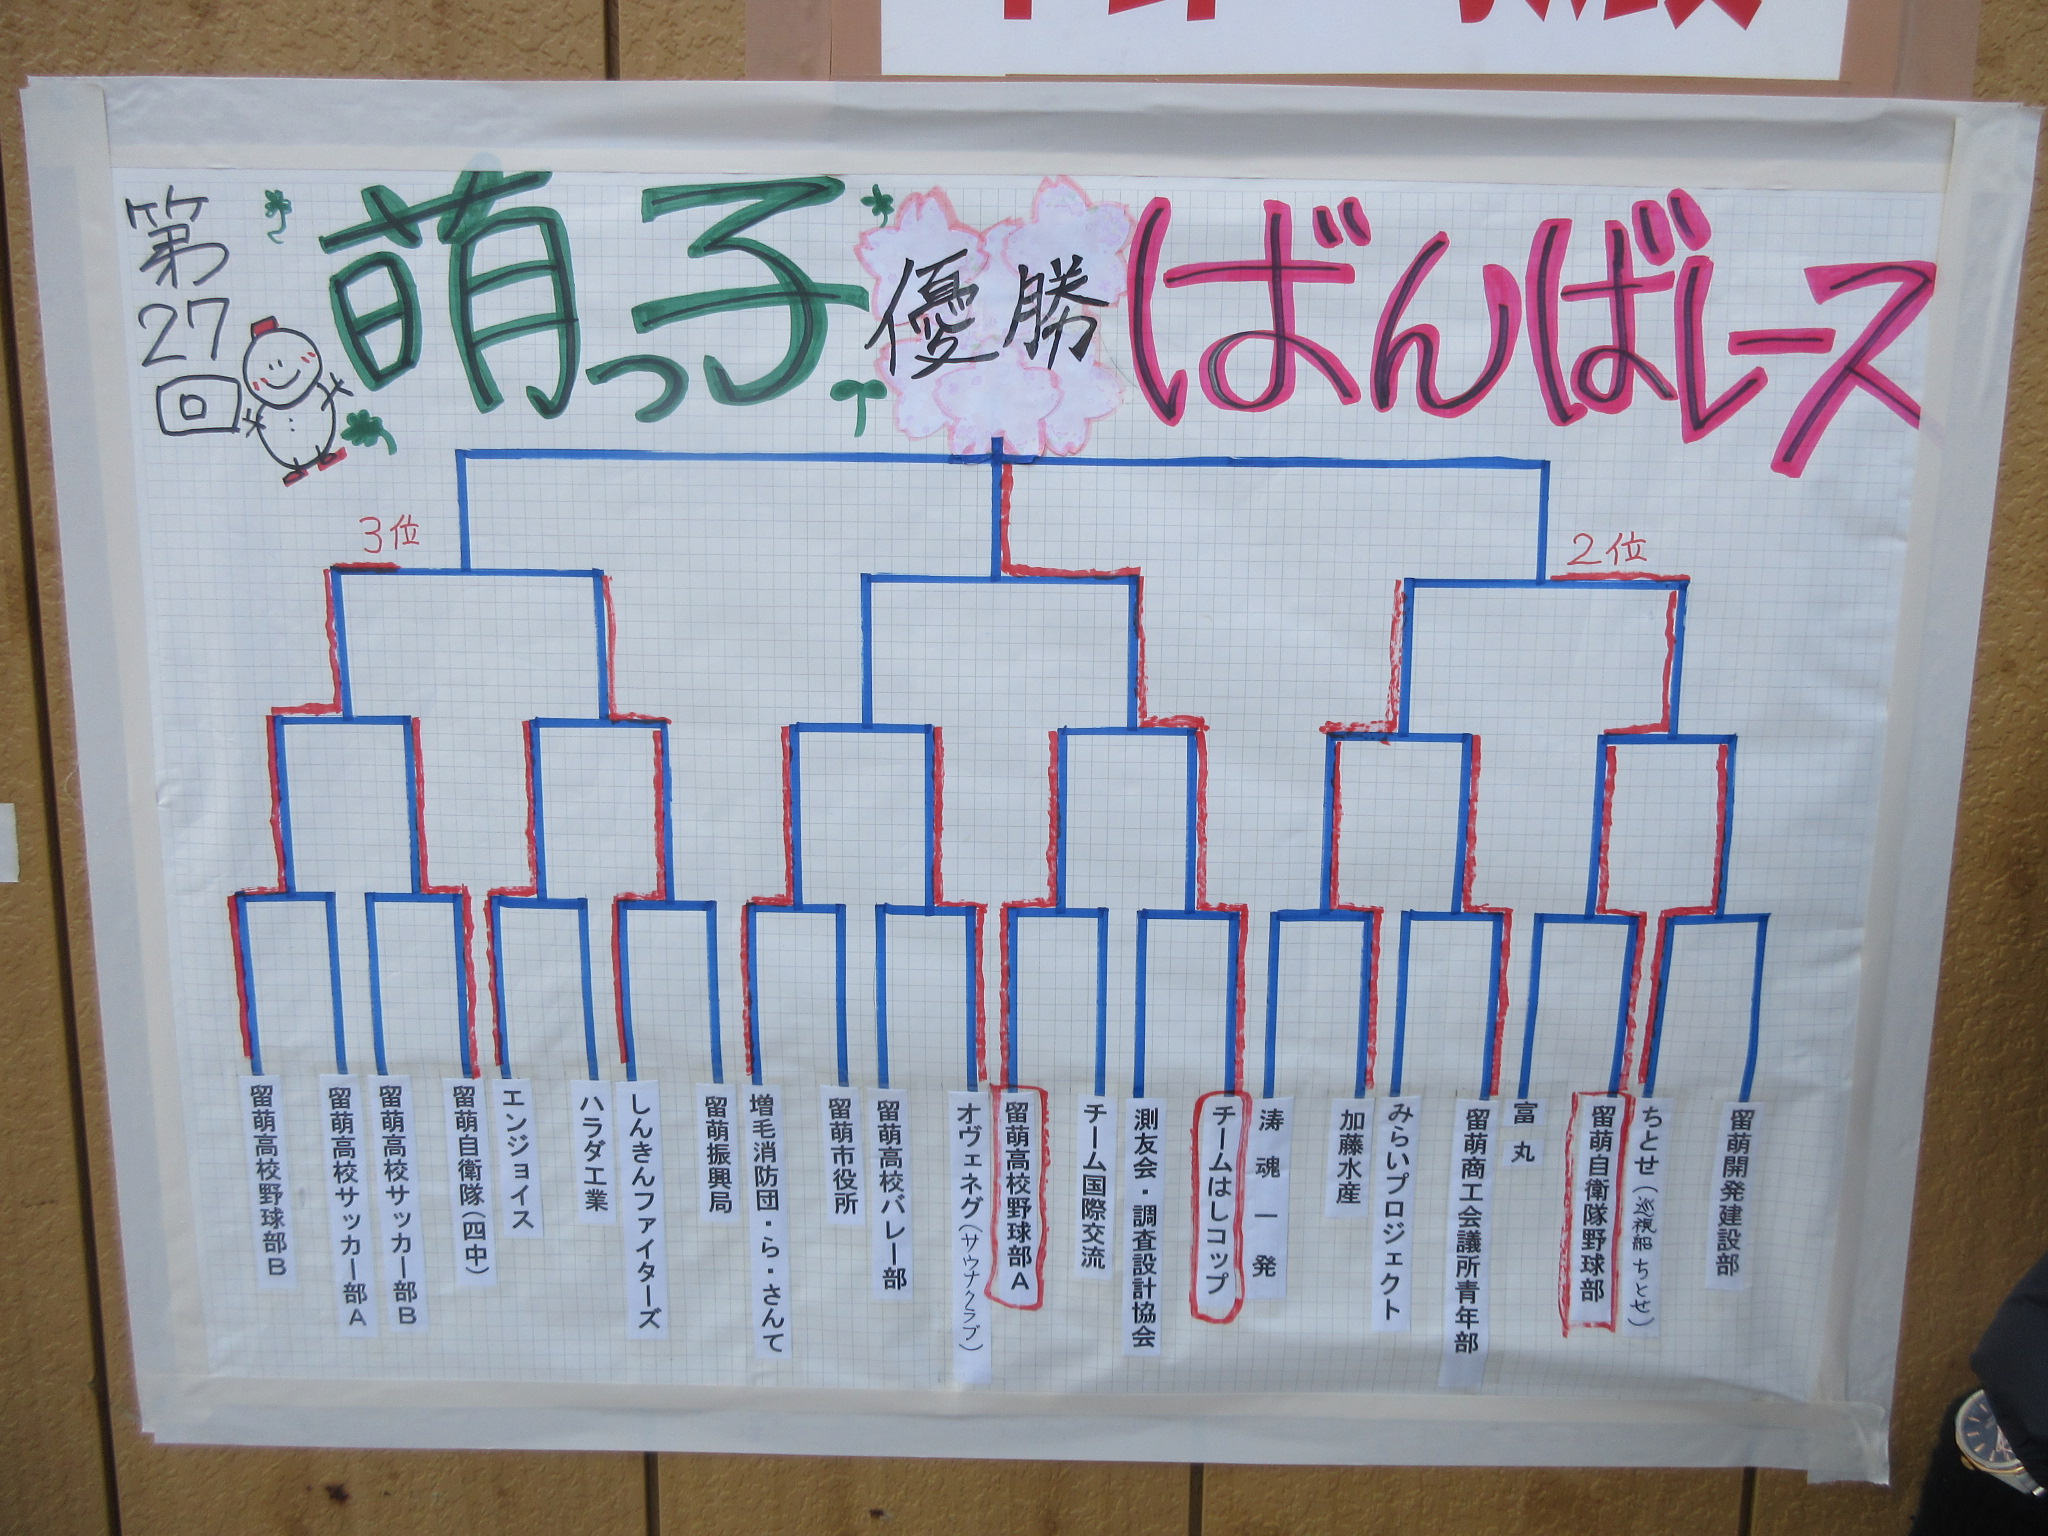 第27回
萌っ子
優勝
ばんばレース
3位
2位
留萌高校野球部B
留萌高校サッカー部A
留萌高校サッカー部B
留萌自衛隊(四中)
エンジョイス
ハラダ工業
しんきんファイターズ
留萌振興局
増毛消防団・ら・さんて
留萌市役所
留萌高校バレー部
オヴェネグ(サウナクラブ)
留萌高校野球部A
チーム国際交流
測友会・調査設計協会
チームはしコップ
涛魂一発
加藤水産
みらいプロジェクト
留萌商工会議所青年部
富丸
留萌自衛隊野球部
ちとせ(巡視船ちとせ)
留萌開発建設部